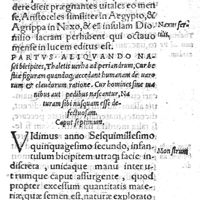 dere dicit prægnantes vitales eo men-
se, Aristoteles similiter in Aegypto, &
Agrippa in Nexo, & et insulam Dio
nisio sacram perhibent quod octauo
mense in lucem editus est.
PARTVS ALIQVANDO NA-
sci bicipites, Thaletis verba ad periandrum, Cur be
stiæ figuram quandoq; accedant humanam de uaro-
rum & claudorum ratione. Cur homines sine ma
nibus aut pedibus nascantur, Na
turam sibi nusquam esse de
fectuosam.
Caput septimum.
VIdimus anno Sesquimillesimo
quinquagesimo secundo, infan-
tulum bicipitem utraq; facie in-
discreta, unicaque manu inter u-
trumque caput assurgente, quod
propter excessum quantitatis mate-
riæ, quæ semen est, naturæ explorato
Nexus fer-
tilis,
Monstrum